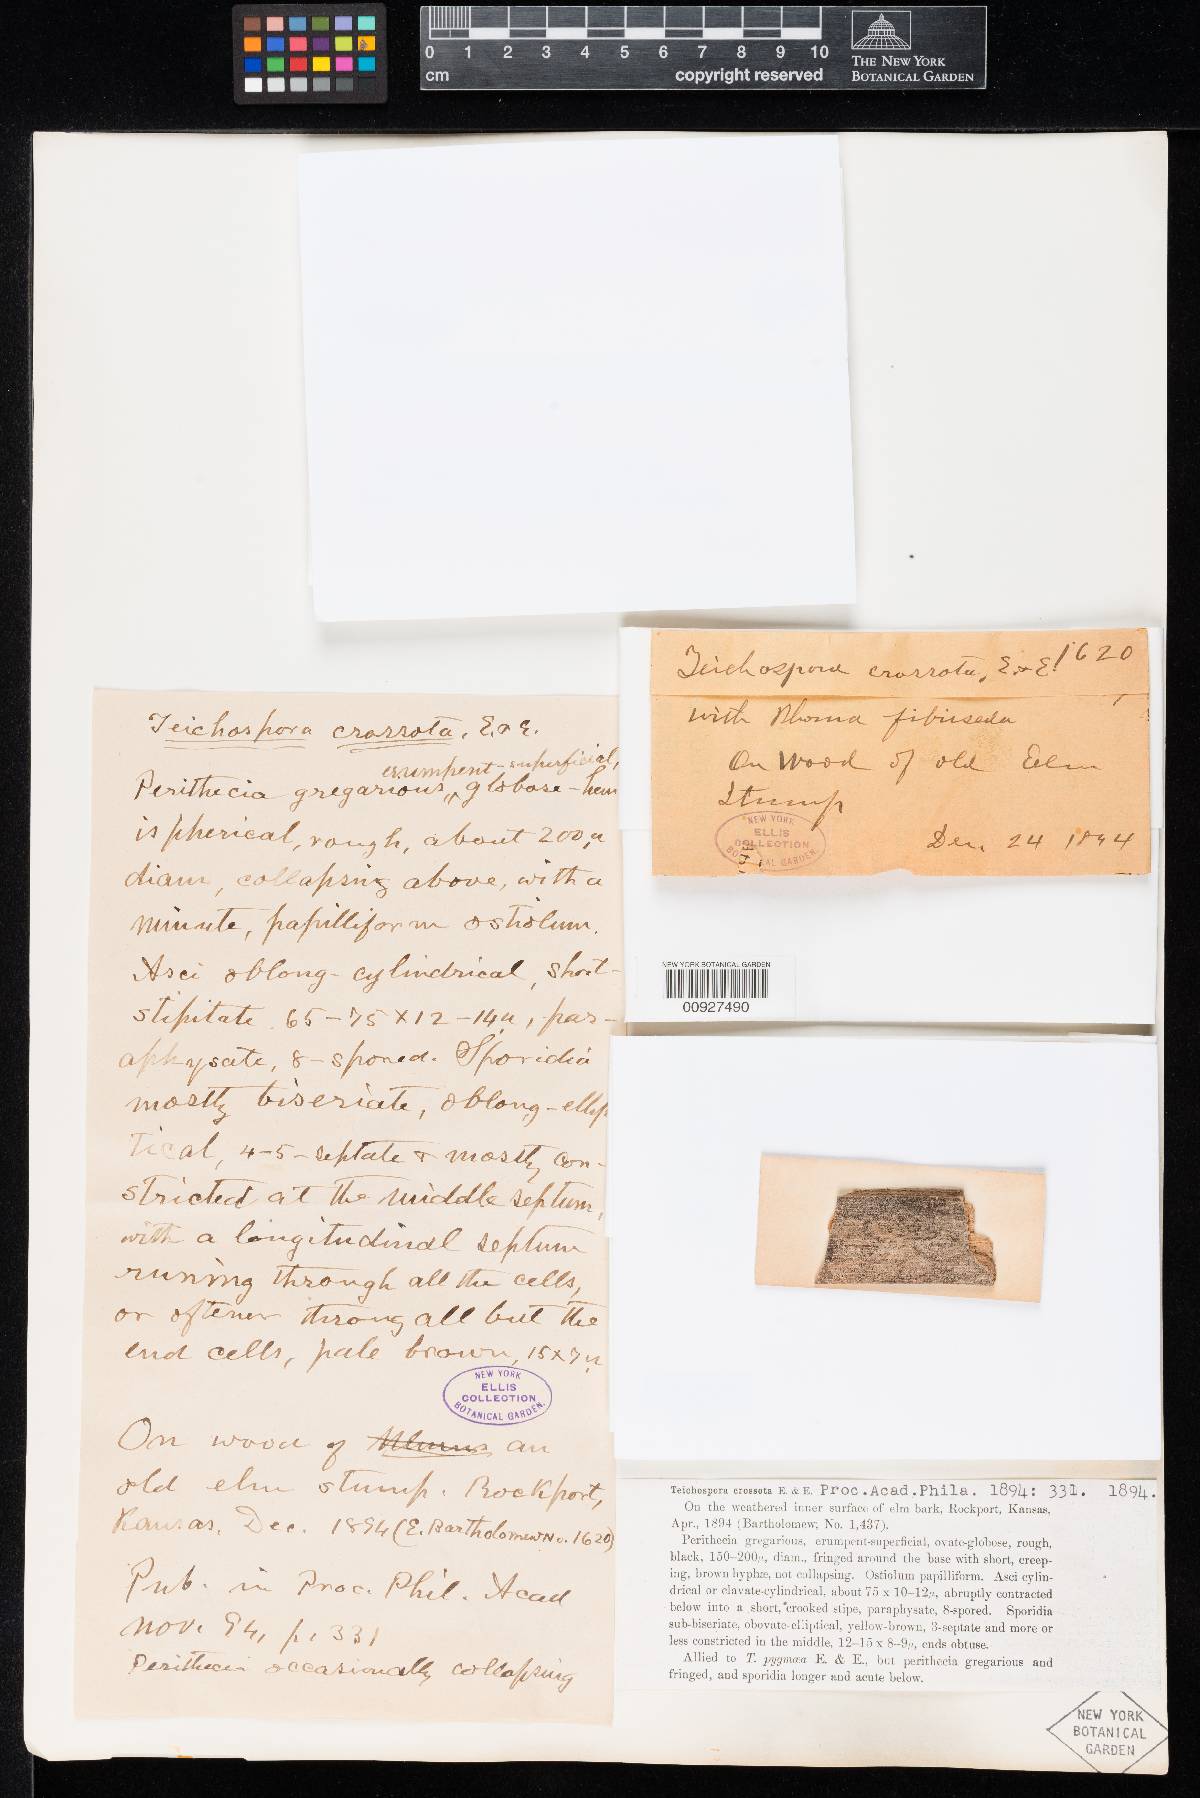 0 1 2 3 4 5 6 7 8 9 10
cm
copyright reserved
THE NEW YORK
BOTANICAL GARDEN
Teichospora crossota, E. & E. 1620
with Phoma
On wood of old Elm
Stump
NEW YORK
ELLIS
COLLECTION
BOTANICAL GARDEN.
Dec. 24 1894
NEW YORK BOTANICAL GARDEN
00927490
Teichospora crossota, E. & E.
erumpent-superficial,
Perithecia gregarious, globose-hem
ispherical, rough, about 200µ
diam, collapsing above, with a
minute, papilliform ostiolum.
Asci oblong-cylindrical, short-
stipitate 65-75 x 12-14µ, par-
aphysate, 8-spored. Sporidia
mostly biseriate, oblong-ellip
tical, 4-5-septate & mostly con-
stricted at the middle septum,
with a longitudinal septum
runing through all the cells,
or oftener throug all but the
end cells, pale brown, 15x7µ
NEW YORK
ELLIS
COLLECTION
BOTANICAL GARDEN.
On wood of Ulmus an
old elm stump. Rockport,
Kansas, Dec. 1894 (E. Bartholomew No. 1620)
Pub. in Proc. Phil. Acad
Nov. 94, p. 331
Perithecia occasionally collapsing
Teichospora crossota E. & E. Proc.Acad.Phila. 1894: 331. 1894.
On the weathered inner surface of elm bark, Rockport, Kansas,
Apr., 1894 (Bartholomew, No. 1,437).
Perithecia gregarious, erumpent-superficial, ovate-globose, rough,
black, 150–200µ, diam., fringed around the base with short, creep-
ing, brown hyphæ, not collapsing. Ostiolum papilliform. Asci cylin-
drical or clavate-cylindrical, about 75 x 10–12µ, abruptly contracted
below into a short, crooked stipe, paraphysate, 8-spored. Sporidia
sub-biseriate, obovate-elliptical, yellow-brown, 3-septate and more or
less constricted in the middle, 12–15 x 8–9µ, ends obtuse.
Allied to T. pygmæa E. & E., but perithecia gregarious and
fringed, and sporidia longer and acute below.
NEW YORK
BOTANICAL
GARDEN